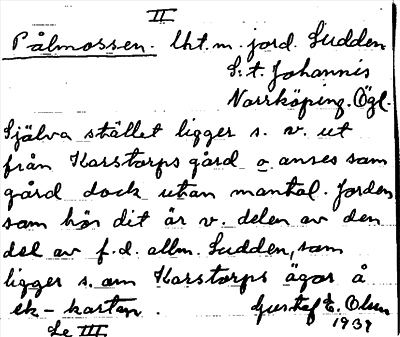 II
Pålmossen. lht. m. jord. Sudden
S:t. Johannis
Norrköping. Ögl.
Själva stället ligger s. v. ut
från Korstorps gård o anses som
gård dock utan mantal. Jorden
som hör dit är v. delen av den
del av f.d. allm. Sudden, som
ligger s. om Korstorps ägor å
ek-kartan. Gustaf E. Olsen
Se III 1939